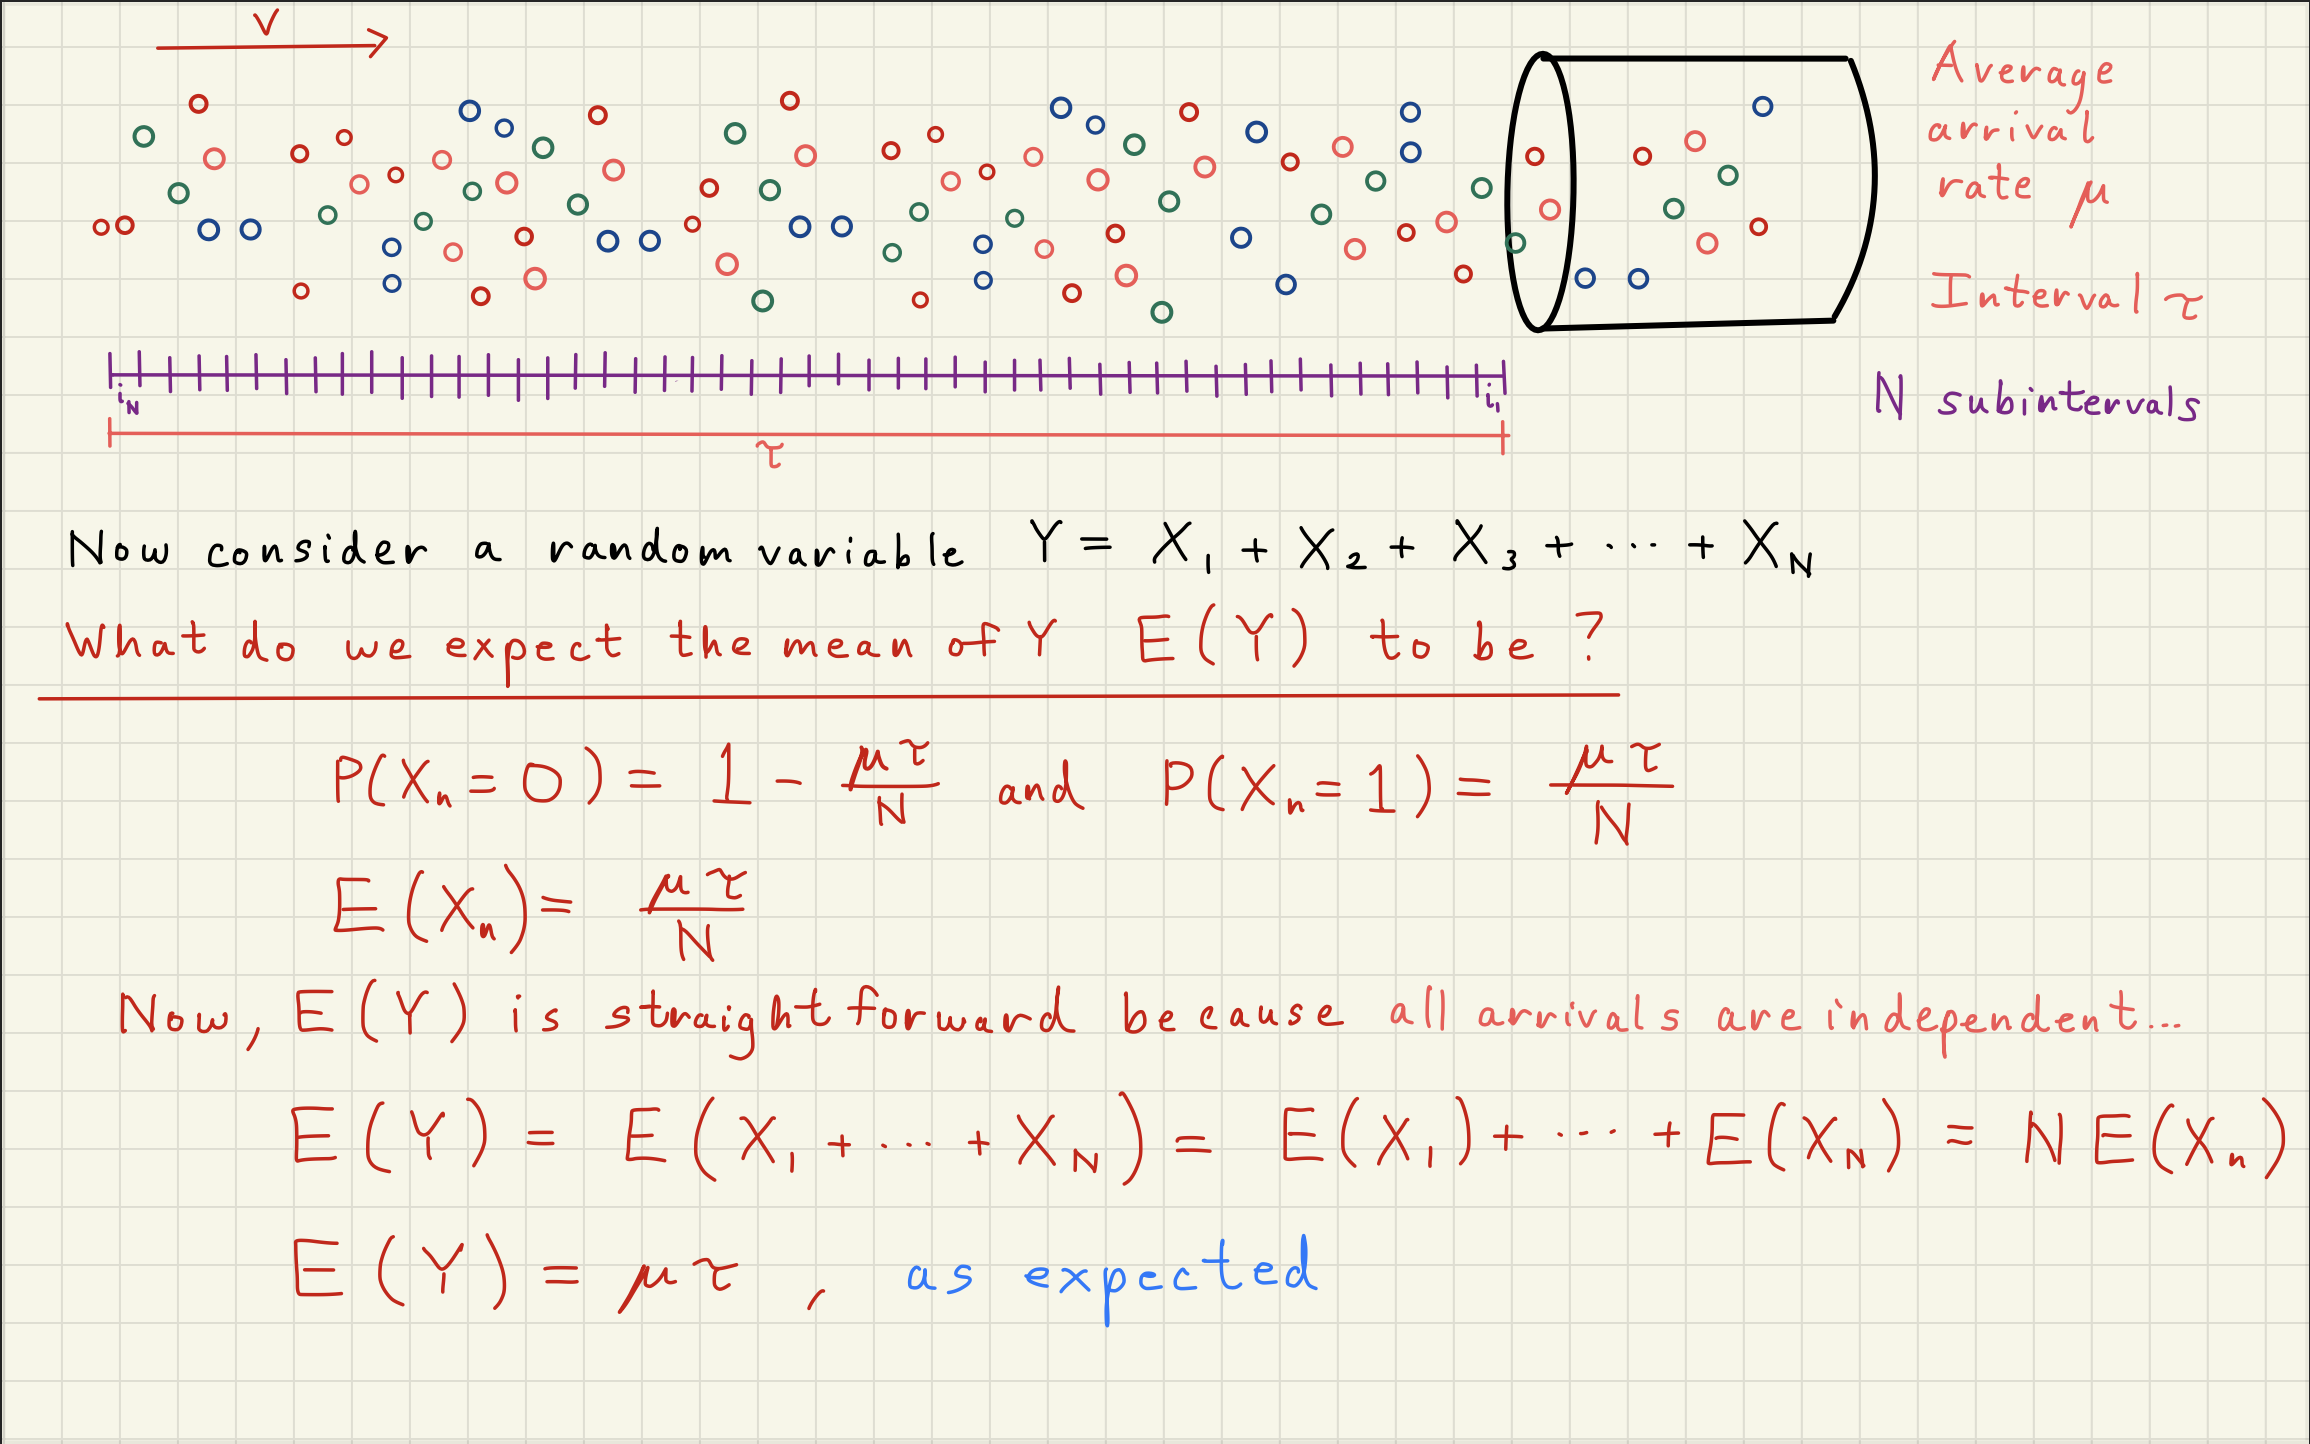 v
Average
arrival
rate μ
Interval τ
N subintervals
i_N i_1
τ
Now consider a random variable Y = X_1 + X_2 + X_3 + ... + X_N
What do we expect the mean of Y E(Y) to be?
P(X_n = 0) = 1 - μτ/N and P(X_n = 1) = μτ/N
E(X_n) = μτ/N
Now, E(Y) is straightforward because all arrivals are independent...
E(Y) = E(X_1 + ... + X_N) = E(X_1) + ... + E(X_N) = NE(X_n)
E(Y) = μτ, as expected